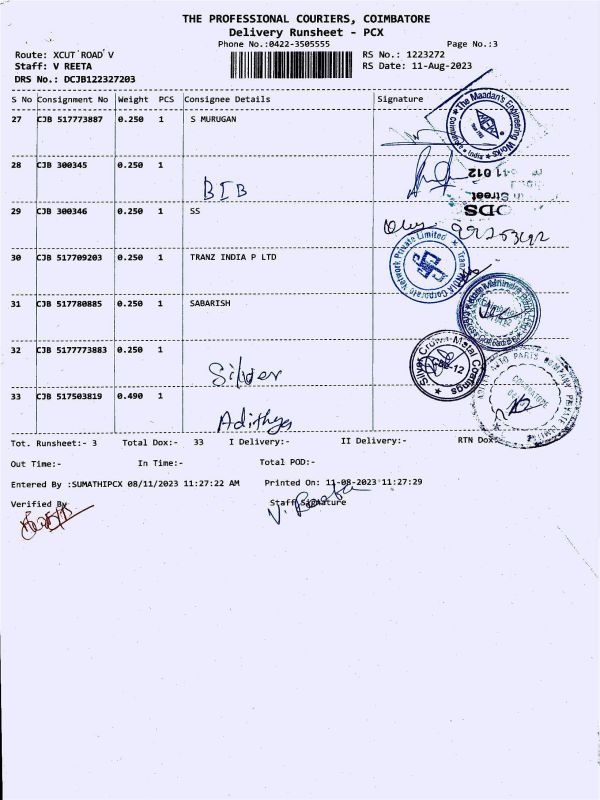 THE PROFESSIONAL COURIERS, COIMBATORE
Delivery Runsheet - PCX
Phone No.:0422-3505555
Page No.:3
Route: XCUT ROAD V
RS No.: 1223272
Staff: V REETA
RS Date: 11-Aug-2023
DRS No.: DCJB122327203
S No Consignment No Weight PCS Consignee Details Signature
27 CJB 517773887 0.250 1 S MURUGAN
The Maadan's Engineering Works
India
28 CJB 300345 0.250 1
BIB
11 012
Street
ODS
29 CJB 300346 0.250 1 SS
30 CJB 517709203 0.250 1 TRANZ INDIA P LTD
Tranz INDIA Corporate Network Private Limited
31 CJB 517780885 0.250 1 SABARISH
32 CJB 5177773883 0.250 1
Silver
Silver Crown Metal Coatings
CBE-12
33 CJB 517503819 0.490 1
Adithya
AUTO PARTS COMPANY PRIVATE LIMITED
COIMBATORE
Tot. Runsheet:- 3 Total Dox:- 33 I Delivery:- II Delivery:- RTN Dox:-
Out Time:- In Time:- Total POD:-
Entered By :SUMATHIPCX 08/11/2023 11:27:22 AM Printed On: 11-08-2023 11:27:29
Verified By Staff Signature
V. Reeta